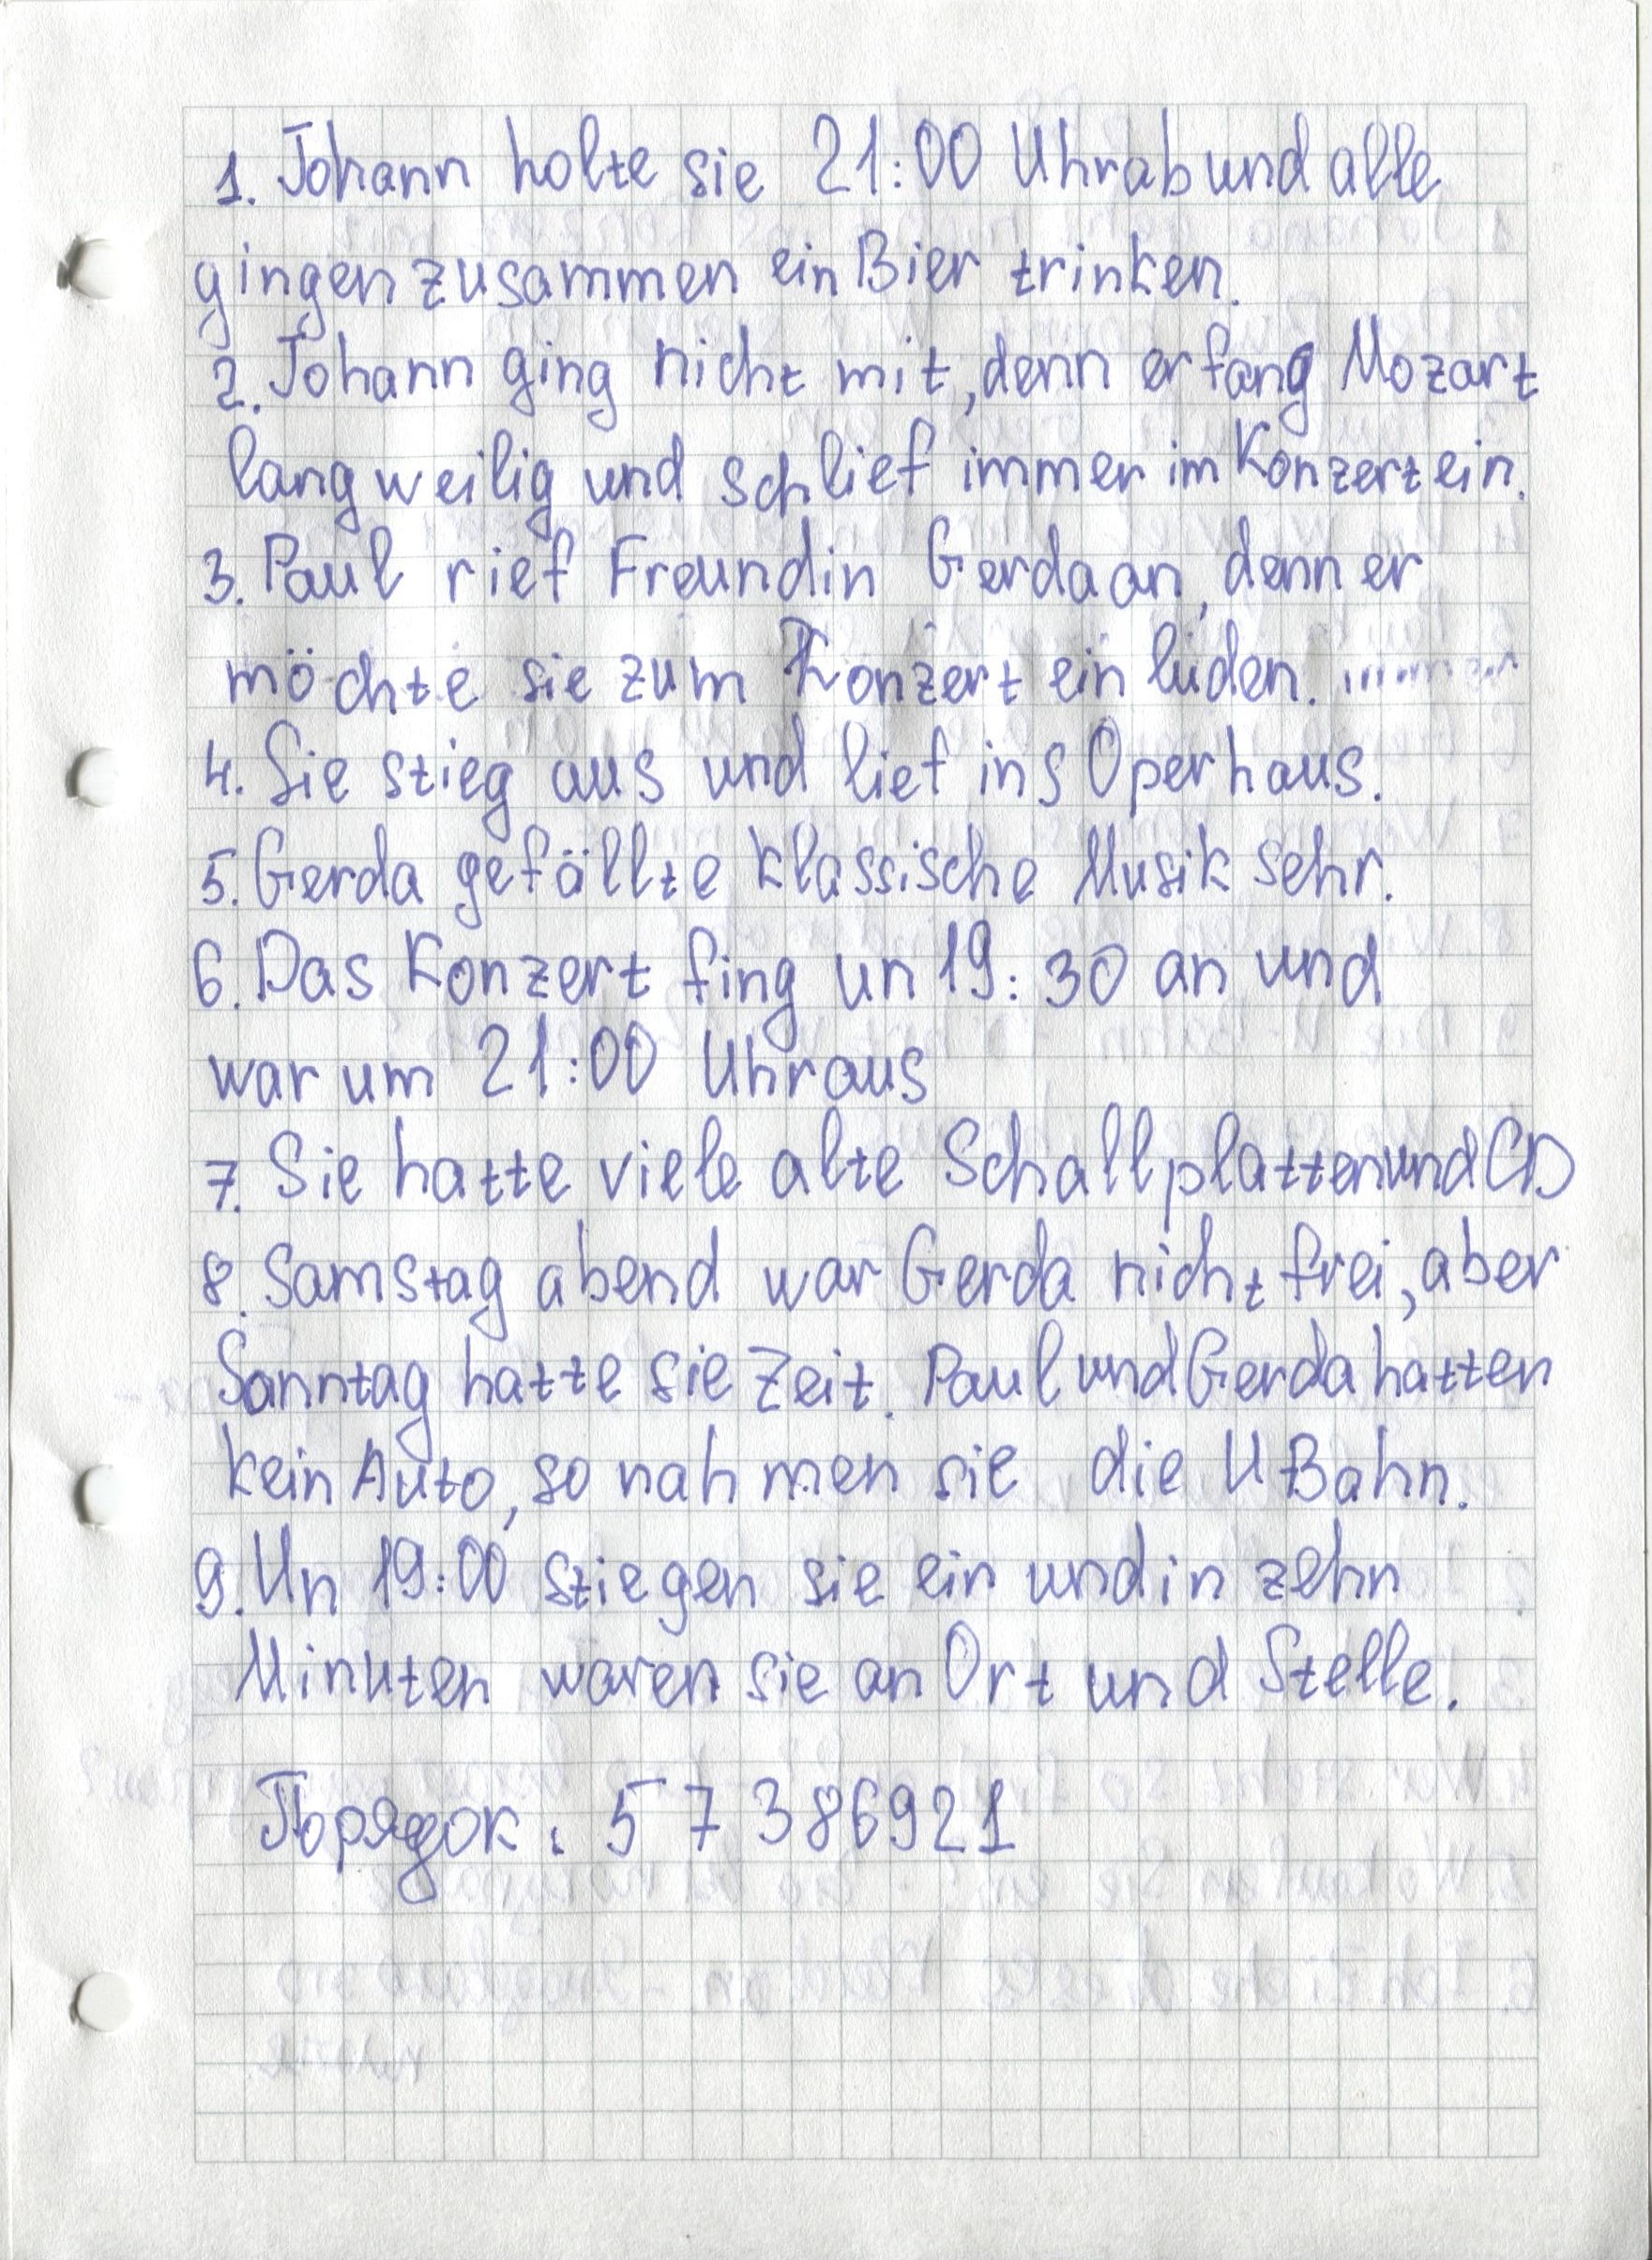 1. Johann holte sie 21:00 Uhr ab und alle
gingen zusammen ein Bier trinken.
2. Johann ging nicht mit, denn er fang Mozart
langweilig und schlief immer im Konzert ein.
3. Paul rief Freundin Gerda an, denn er
möchte sie zum Konzert ein luden.
4. Sie stieg aus und lief ins Operhaus.
5. Gerda gefällte klassische Musik sehr.
6. Das Konzert fing un 19:30 an und
war um 21:00 Uhr aus
7. Sie hatte viele alte Schallplatten und CD
8. Samstag abend war Gerda nicht frei, aber
Sonntag hatte sie Zeit. Paul und Gerda hatten
kein Auto, so nahmen sie die U Bahn.
9. Un 19:00 stiegen sie ein und in zehn
Minuten waren sie an Ort und Stelle.
Порядок: 5 7 386921